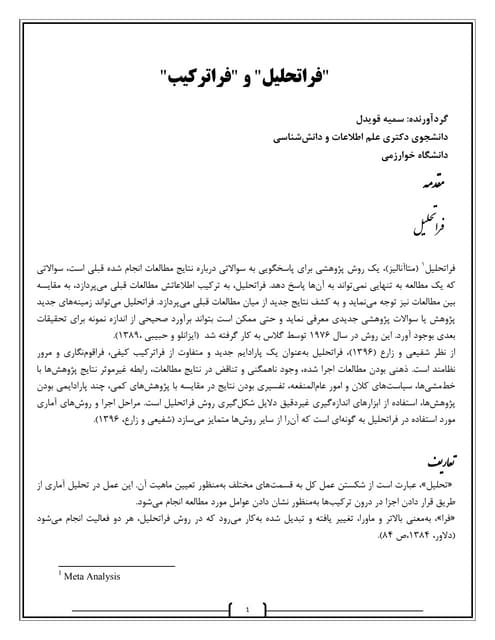 "فراتحلیل" و "فراترکیب"
گردآورنده: سمیه قویدل
دانشجوی دکتری علم اطلاعات و دانش‌شناسی
دانشگاه خوارزمی
مقدمه
فراتحلیل
فراتحلیل1 (متاآنالیز)، یک روش پژوهشی برای پاسخگویی به سوالاتی درباره نتایج مطالعات انجام شده قبلی است، سوالاتی
که یک مطالعه به تنهایی نمی‌تواند به آن‌ها پاسخ دهد. فراتحلیل، به ترکیب اطلاعاتش مطالعات قبلی می‌پردازد، به مقایسه
بین مطالعات نیز توجه می‌نماید و به کشف نتایج جدید از میان مطالعات قبلی می‌پردازد. فراتحلیل می‌تواند زمینه‌های جدید
پژوهش یا سوالات پژوهشی جدیدی معرفی نماید و حتی ممکن است بتواند برآورد صحیحی از اندازه نمونه برای تحقیقات
بعدی بوجود آورد. این روش در سال ۱۹۷۶ توسط گلاس به کار گرفته شد (ایزانلو و حبیبی ،۱۳۸۹).
از نظر شفیعی و زارع (۱۳۹۶)، فراتحلیل به‌عنوان یک پارادایم جدید و متفاوت از فراترکیب کیفی، فراقوم‌نگاری و مرور
نظامند است. ذهنی بودن مطالعات اجرا شده، وجود ناهمگنی و تناقض در نتایج مطالعات، رابطه غیرموثر نتایج پژوهش‌ها با
خط‌مشی‌ها، سیاست‌های کلان و امور عام‌المنفعه، تفسیری بودن نتایج در مقایسه با پژوهش‌های کمی، چند پارادایمی بودن
پژوهش‌ها، استفاده از ابزارهای اندازه‌گیری غیردقیق دلایل شکل‌گیری روش فراتحلیل است. مراحل اجرا و روش‌های آماری
مورد استفاده در فراتحلیل به گونه‌ای است که آن‌را از سایر روش‌ها متمایز می‌سازد (شفیعی و زارع، ۱۳۹۶).
تعاریف
«تحلیل»، عبارت است از شکستن عمل کل به قسمت‌های مختلف به‌منظور تعیین ماهیت آن. این عمل در تحلیل آماری از
طریق قرار دادن اجزا در درون ترکیب‌ها به‌منظور نشان دادن عوامل مورد مطالعه انجام می‌شود.
«فرا»، به‌معنی بالاتر و ماورا، تغییر یافته و تبدیل شده به‌کار می‌رود که در روش فراتحلیل، هر دو فعالیت انجام می‌شود
(دلاور، ۱۳۸۴،ص ۸۴).
1 Meta Analysis
1